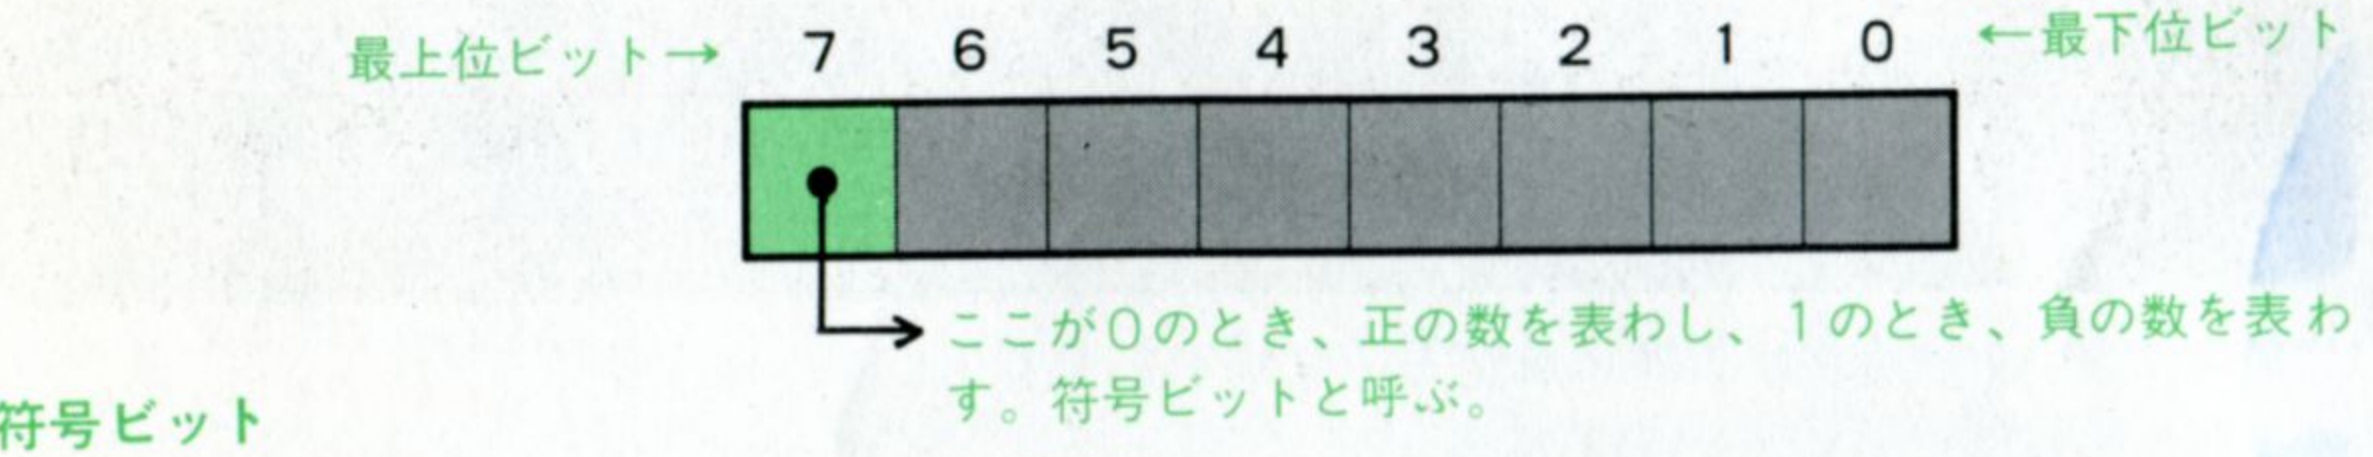 最上位ビット→ 7 6 5 4 3 2 1 0 ←最下位ビット
ここが0のとき、正の数を表わし、1のとき、負の数を表わ
す。符号ビットと呼ぶ。
符号ビット